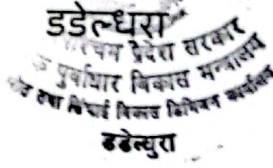 डडेल्धरा
प्रदेश सरकार
पुर्वाधार विकास मन्त्रालय
तथा सिंचाई विकास डिभिजन कार्यालय
डडेल्धुरा